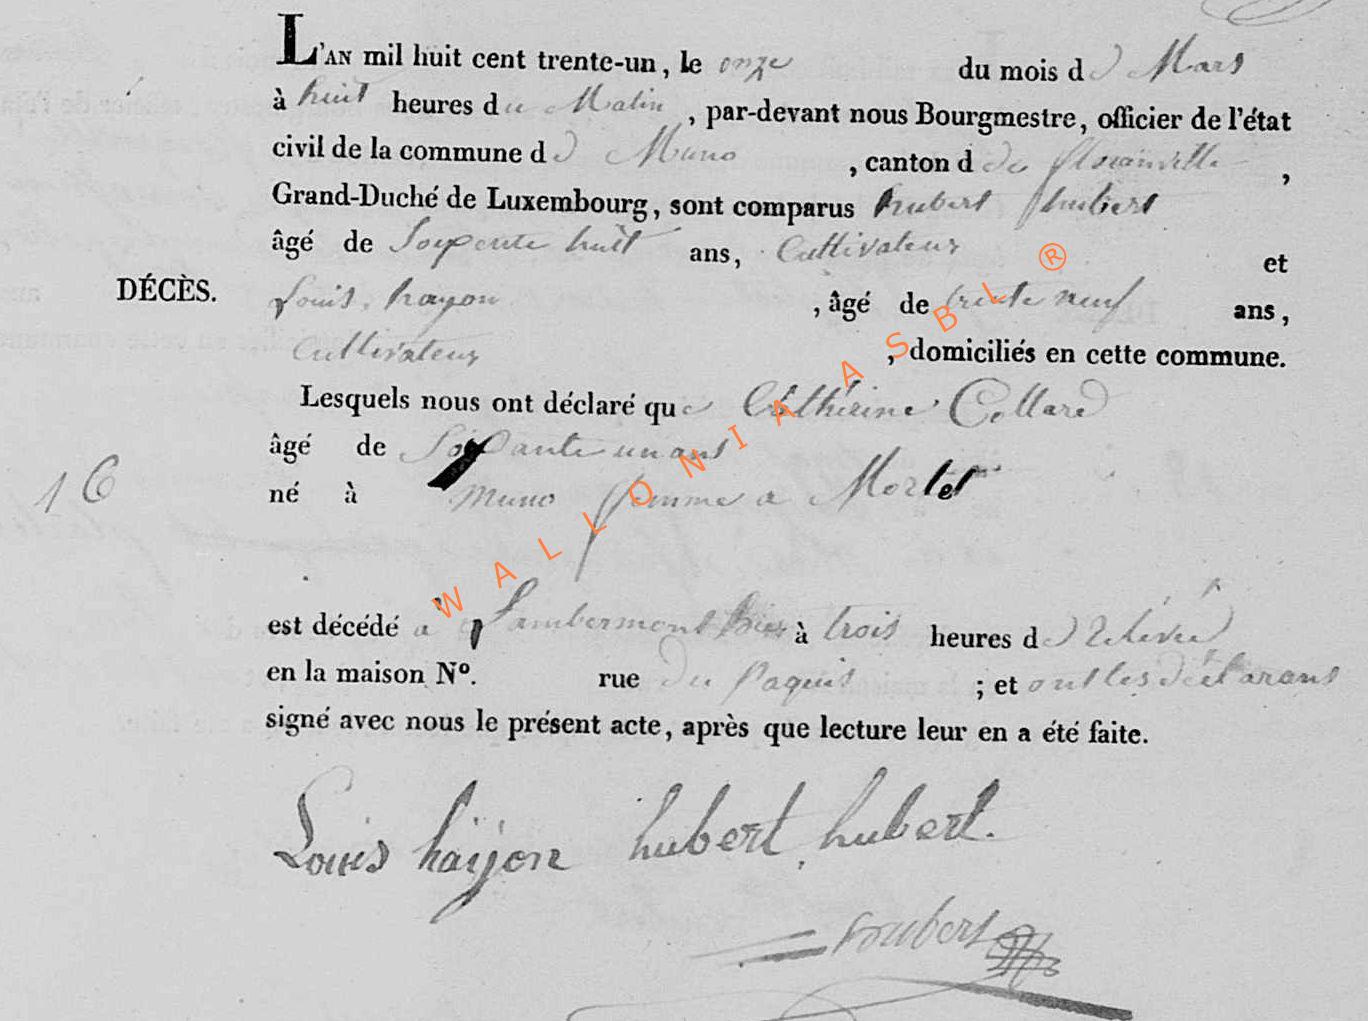 L'AN mil huit cent trente-un, le onze du mois de Mars
à huit heures du Matin, par-devant nous Bourgmestre, officier de l'état
civil de la commune de Muno, canton de florenville,
Grand-Duché de Luxembourg, sont comparus hubert hubert
âgé de Soixante huit ans, Cultivateur et
DÉCÈS.
Louis hayon, âgé de trente neuf ans,
Cultivateur, domiciliés en cette commune.
Lesquels nous ont déclaré que Cathérine Collard
âgé de Soixante un ans
16
né à Muno femme a
est décédé a Lambermont hier à trois heures de
en la maison N°. rue du Paquis; et ont les déclarans
signé avec nous le présent acte, après que lecture leur en a été faite.
Louis haÿon hubert hubert.
WALLONIA ASBL ®